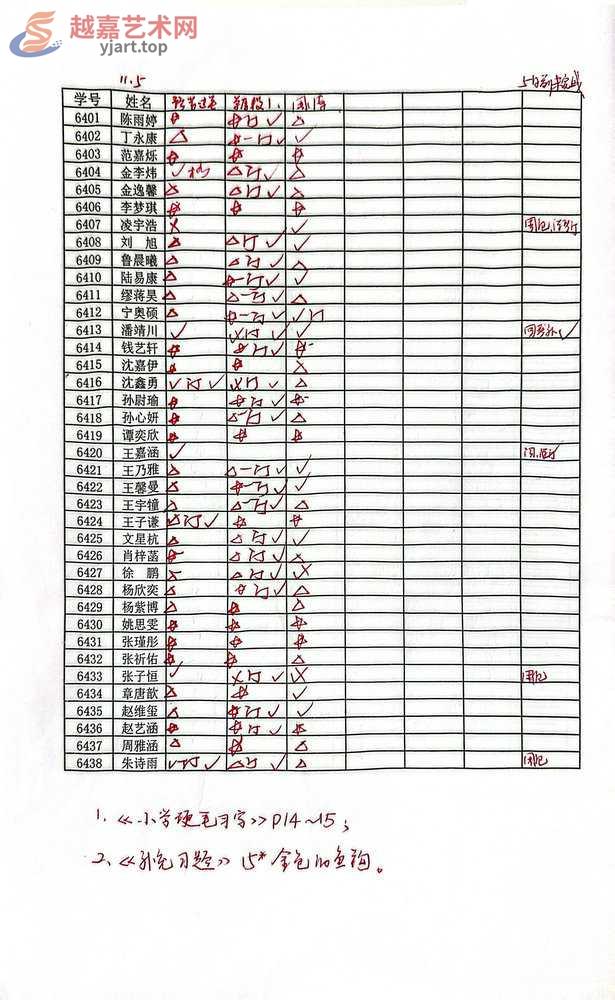 越嘉艺术网
yjart.top
11.5
学号 姓名
6401 陈雨婷
6402 丁永康
6403 范嘉烁
6404 金李炜
6405 金逸馨
6406 李梦琪
6407 凌宇浩
6408 刘 旭
6409 鲁晨曦
6410 陆易康
6411 缪蒋昊
6412 宁奥硕
6413 潘靖川
6414 钱艺轩
6415 沈嘉伊
6416 沈鑫勇
6417 孙尉瑜
6418 孙心妍
6419 谭奕欣
6420 王嘉涵
6421 王乃雅
6422 王馨曼
6423 王宇橦
6424 王子谦
6425 文星杭
6426 肖梓菡
6427 徐 鹏
6428 杨欣奕
6429 杨紫博
6430 姚思雯
6431 张瑾彤
6432 张祈佑
6433 张子恒
6434 章唐歆
6435 赵维玺
6436 赵艺涵
6437 周雅涵
6438 朱诗雨
1.《小学硬毛习字》P14~15；
2、《补充习题》15* 金色的鱼钩。